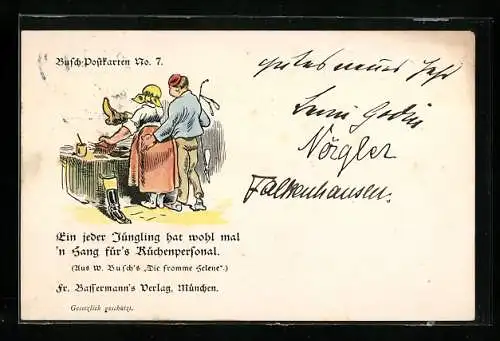 Busch-Postkarten No. 7.
Gutes neues Jahr
Nörgler
Falkenhausen.
Ein jeder Jüngling hat wohl mal
'n Hang für's Küchenpersonal.
(Aus W. Busch's „Die fromme Helene“.)
Fr. Bassermann's Verlag, München.
Gesetzlich geschützt.